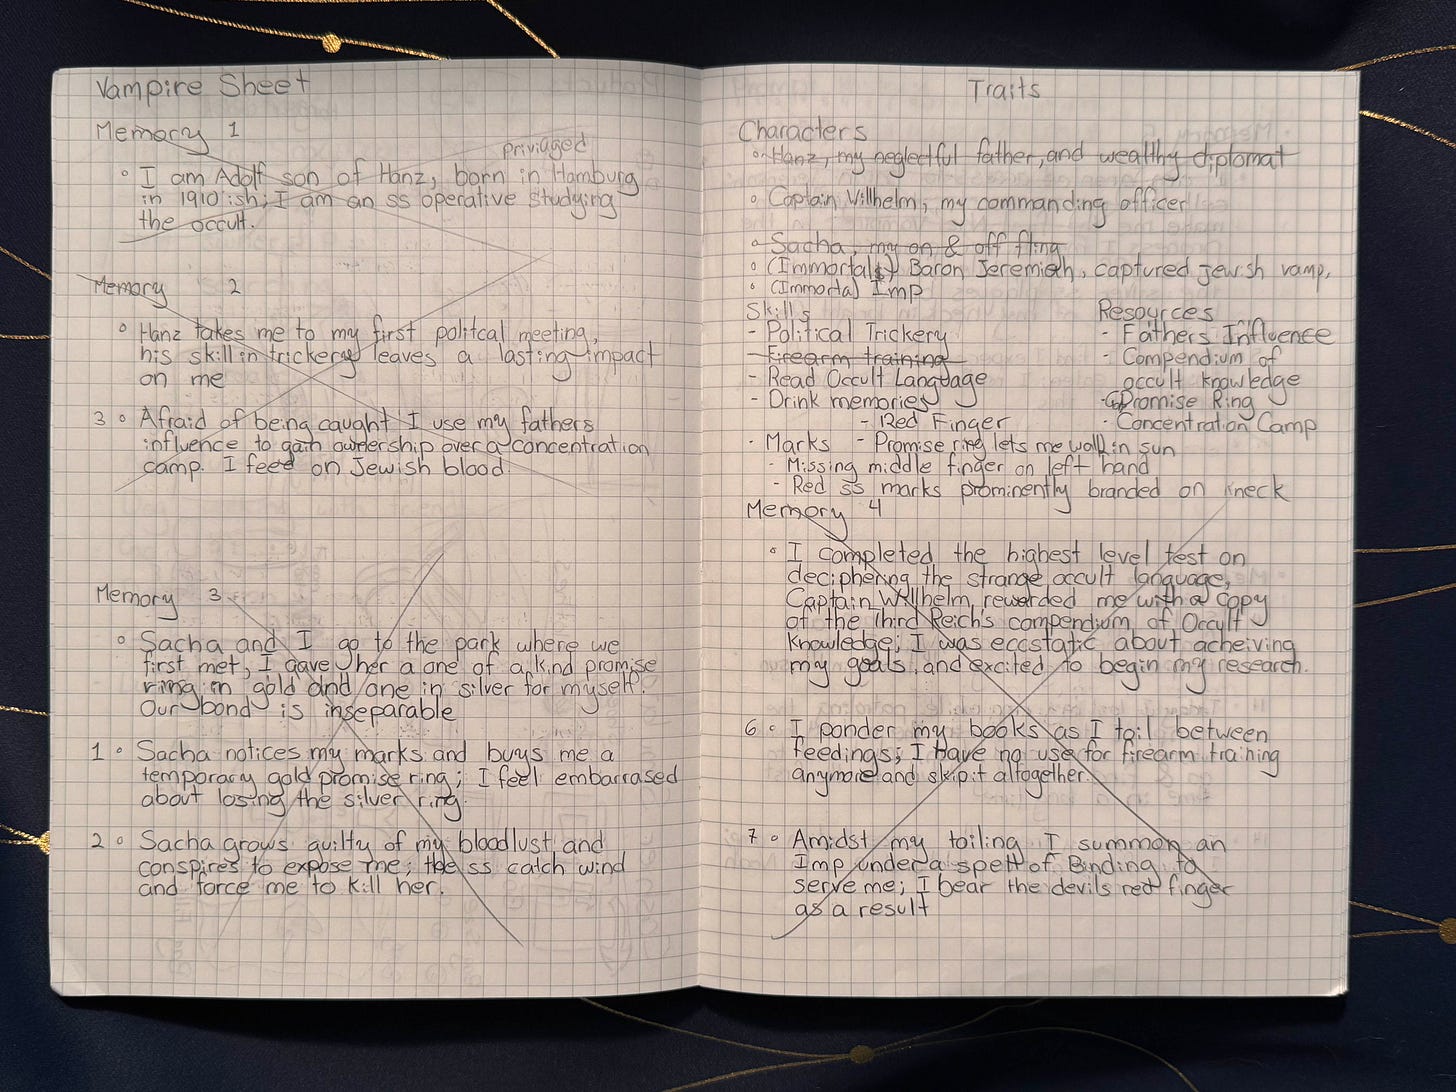 Vampire Sheet
Memory 1
privilaged
• I am Adolf son of Hanz, born in Hamburg
in 1910 ish; I am an ss operative studying
the occult.
Memory 2
• Hanz takes me to my first politcal meeting,
his skill in trickery leaves a lasting impact
on me
3 • Afraid of being caught I use my fathers
influence to gain ownership over a concentration
camp. I feed on Jewish blood
Memory 3
• Sacha and I go to the park where we
first met, I gave her a one of a kind promise
ring in gold and one in silver for myself.
Our bond is inseparable
1 • Sacha notices my marks and buys me a
temporary gold promise ring; I feel embarrased
about losing the silver ring.
2 • Sacha grows guilty of my bloodlust and
conspires to expose me; the ss catch wind
and force me to kill her.
Traits
Characters
• Hanz, my neglectful father, and wealthy diplomat
• Captain Willhelm, my commanding officer
• Sacha, my on & off fling
• (Immortals) Baron Jeremiah, captured jewish vamp,
• (Immortal) Imp
Skills
- Political Trickery
- Firearm training
- Read Occult Language
- Drink memories
- Red Finger
Resources
- Fathers Influence
- Compendium of
occult knowledge
- Promise Ring
- Concentration Camp
· Marks - Promise ring lets me walk in sun
- Missing middle finger on left hand
- Red ss marks prominently branded on neck
Memory 4
• I completed the highest level test on
deciphering the strange occult language,
Captain Willhelm rewarded me with a copy
of the Third Reich's compendium of Occult
Knowledge; I was eccstatic about acheiving
my goals and excited to begin my research.
6 • I ponder my books as I toil between
feedings; I have no use for firearm training
anymore and skip it altogether.
7 • Amidst my toiling I summon an
Imp under a spell of Binding to
serve me; I bear the devils red finger
as a result